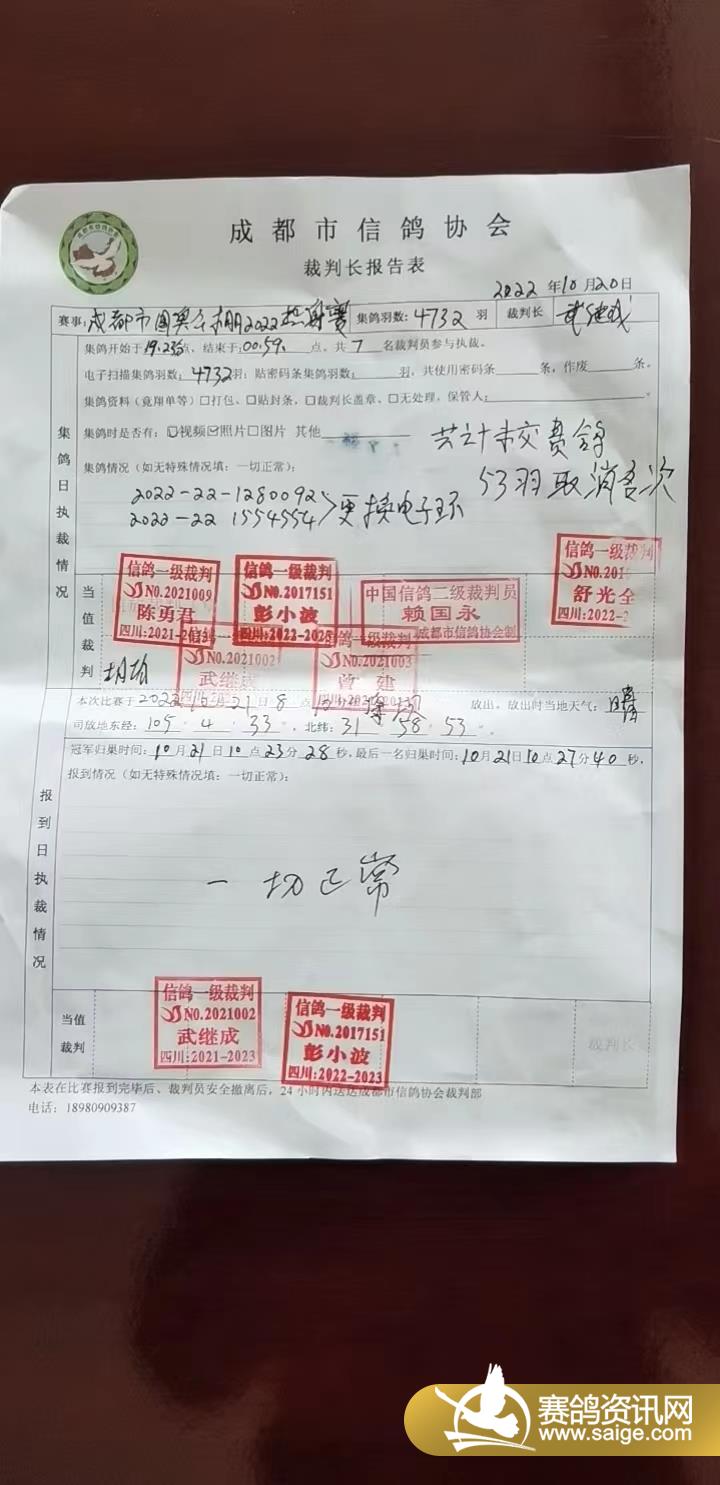 成都市信鸽协会
裁判长报告表
2022年10月20日
赛事:成都市国奥公棚2022 赛 集鸽羽数:4732羽 裁判长 武继成
集鸽开始于19.23点,结束于:00:59.点,共7名裁判员参与执裁。
电子扫描集鸽羽数:4732羽;贴密码条集鸽羽数: 羽,共使用密码条 条,作废 条。
集鸽资料(竟翔单等)□打包、□贴封条,□裁判长盖章、□无处理,保管人:
集鸽时是否有:☑视频☑照片□图片 其他
共计未交费鸽
53羽取消名次
集鸽情况(如无特殊情况填:一切正常):
2022-22-1280092
2022-22 1554554>更换电子环
集鸽日执裁情况
当值裁判
信鸽一级裁判
NO.2021009
陈勇君
四川:2021-
信鸽一级裁判
NO.2017151
彭小波
四川:2022-2023
中国信鸽二级裁判员
赖国永
成都市信鸽协会制
信鸽一级裁判
NO.201
舒光全
四川:2022-2
NO.2021002
武继成
NO.2021003
曾建
本次比赛于2022 21日8点 放出,放出时当地天气:晴
司放地东经:105° 4 33 北纬:31 58 53
冠军归巢时间:10月21日10点23分28秒,最后一名归巢时间:10月21日10点27分40秒,
报到情况(如无特殊情况填:一切正常):
报到日执裁情况
一切正常
当值裁判
信鸽一级裁判
NO.2021002
武继成
四川:2021-2023
信鸽一级裁判
NO.2017151
彭小波
四川:2022-2023
裁判长
本表在比赛报到完毕后、裁判员安全撤离后,24小时内送达成都市信鸽协会裁判部
电话:18980909387
赛鸽资讯网
www.saige.com